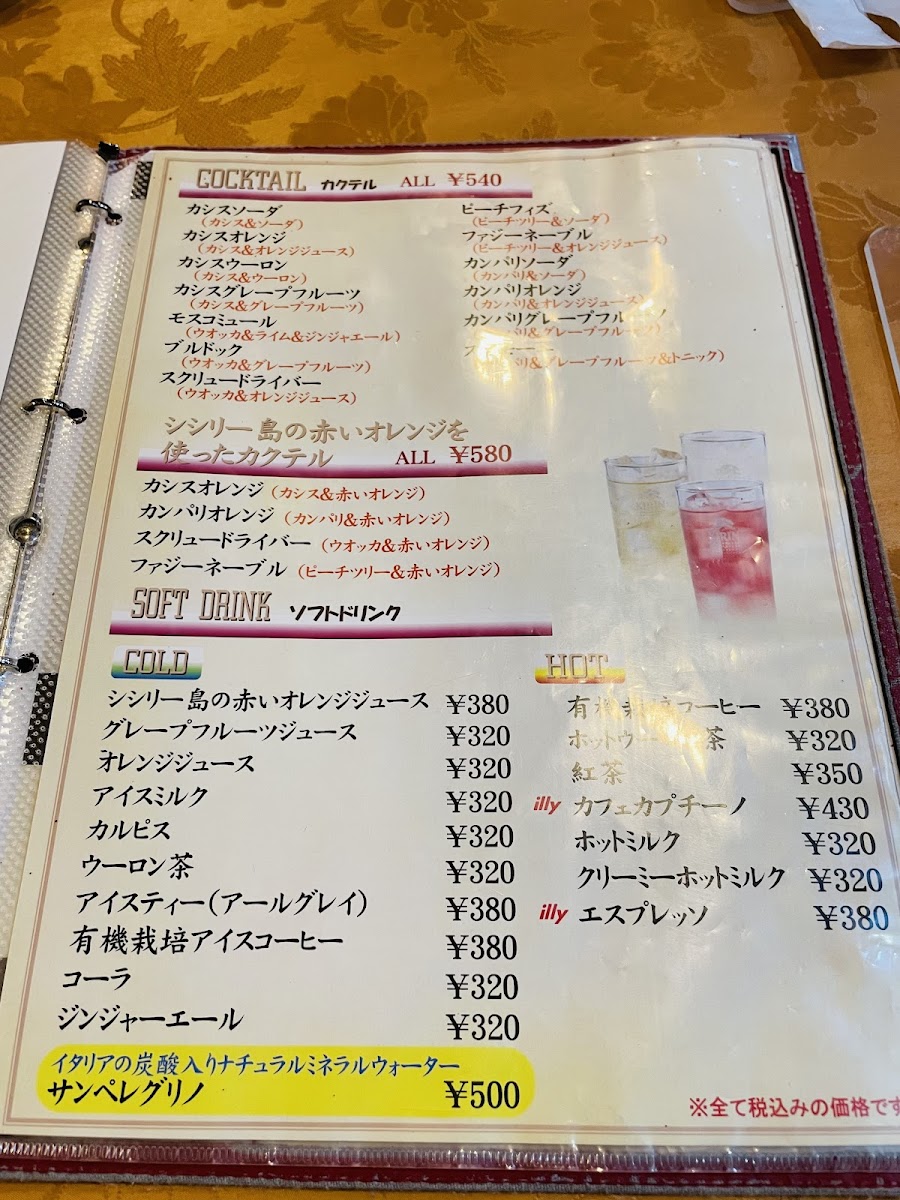 COCKTAIL カクテル ALL ¥540
カシスソーダ
(カシス&ソーダ)
カシスオレンジ
(カシス&オレンジジュース)
カシスウーロン
(カシス&ウーロン)
カシスグレープフルーツ
(カシス&グレープフルーツ)
モスコミュール
(ウオッカ&ライム&ジンジャエール)
ブルドック
(ウオッカ&グレープフルーツ)
スクリュードライバー
(ウオッカ&オレンジジュース)
ピーチフィズ
(ピーチツリー&ソーダ)
ファジーネーブル
(ピーチツリー&オレンジジュース)
カンパリソーダ
(カンパリ&ソーダ)
カンパリオレンジ
(カンパリ&オレンジジュース)
カンパリグレープフルーツ
&グレープフルーツ)
&グレープフルーツ&トニック)
シシリー島の赤いオレンジを
使ったカクテル ALL ¥580
カシスオレンジ (カシス&赤いオレンジ)
カンパリオレンジ (カンパリ&赤いオレンジ)
スクリュードライバー (ウオッカ&赤いオレンジ)
ファジーネーブル (ピーチツリー&赤いオレンジ)
SOFT DRINK ソフトドリンク
COLD
シシリー島の赤いオレンジジュース ¥380
グレープフルーツジュース ¥320
オレンジジュース ¥320
アイスミルク ¥320
カルピス ¥320
ウーロン茶 ¥320
アイスティー(アールグレイ) ¥380
有機栽培アイスコーヒー ¥380
コーラ ¥320
ジンジャーエール ¥320
イタリアの炭酸入りナチュラルミネラルウォーター
サンペレグリノ ¥500
HOT
有機栽培コーヒー ¥380
ホットウーロン茶 ¥320
紅茶 ¥350
illy カフェカプチーノ ¥430
ホットミルク ¥320
クリーミーホットミルク ¥320
illy エスプレッソ ¥380
※全て税込みの価格です